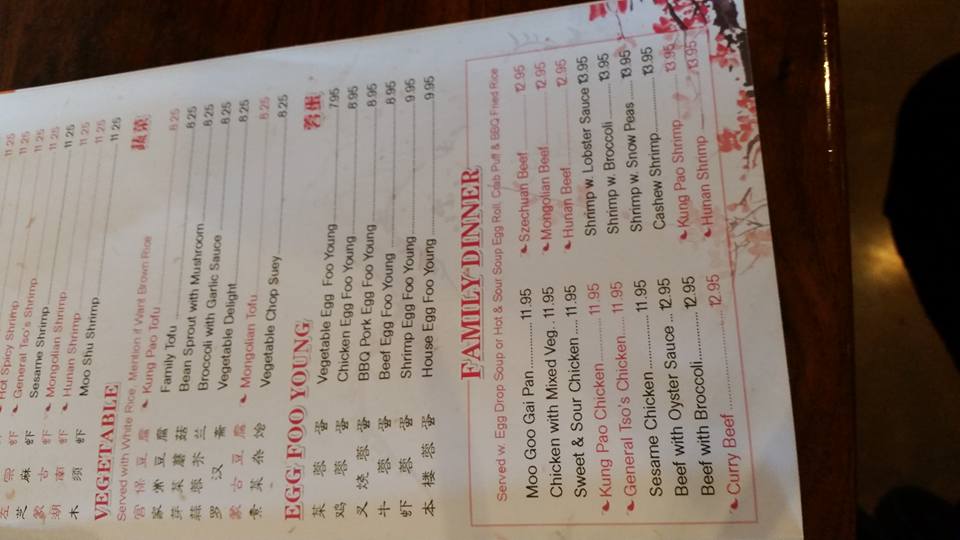 11.25
Hot Spicy Shrimp 11.25
宗 虾 General Tso's Shrimp 11.25
芝 麻 虾 Sesame Shrimp 11.25
蒙 古 虾 Mongolian Shrimp 11.25
湖 南 虾 Hunan Shrimp 11.25
木 须 虾 Moo Shu Shrimp 11.25
VEGETABLE 蔬菜
Served with White Rice, Mention if Want Brown Rice
宫 保 豆 腐 Kung Pao Tofu 8.25
家 常 豆 腐 Family Tofu 8.25
芽 菜 蘑 菇 Bean Sprout with Mushroom 8.25
蒜 蓉 芥 兰 Broccoli with Garlic Sauce 8.25
罗 汉 斋 Vegetable Delight 8.25
蒙 古 豆 腐 Mongolian Tofu 8.25
素 菜 杂 烩 Vegetable Chop Suey 8.25
EGG FOO YOUNG 蓉蛋
菜 蓉 蛋 Vegetable Egg Foo Young 7.95
鸡 蓉 蛋 Chicken Egg Foo Young 8.95
叉 烧 蓉 蛋 BBQ Pork Egg Foo Young 8.95
牛 蓉 蛋 Beef Egg Foo Young 8.95
虾 蓉 蛋 Shrimp Egg Foo Young 9.95
本 楼 蓉 蛋 House Egg Foo Young 9.95
FAMILY DINNER
Served w. Egg Drop Soup or Hot & Sour Soup Egg Roll, Crab Puff & BBQ Fried Rice
Moo Goo Gai Pan 11.95
Chicken with Mixed Veg. 11.95
Sweet & Sour Chicken 11.95
Kung Pao Chicken 11.95
General Tso's Chicken 11.95
Sesame Chicken 11.95
Beef with Oyster Sauce 12.95
Beef with Broccoli 12.95
Curry Beef 12.95
Szechuan Beef 12.95
Mongolian Beef 12.95
Hunan Beef 12.95
Shrimp w. Lobster Sauce 13.95
Shrimp w. Broccoli 13.95
Shrimp w. Snow Peas 13.95
Cashew Shrimp 13.95
Kung Pao Shrimp 13.95
Hunan Shrimp 13.95